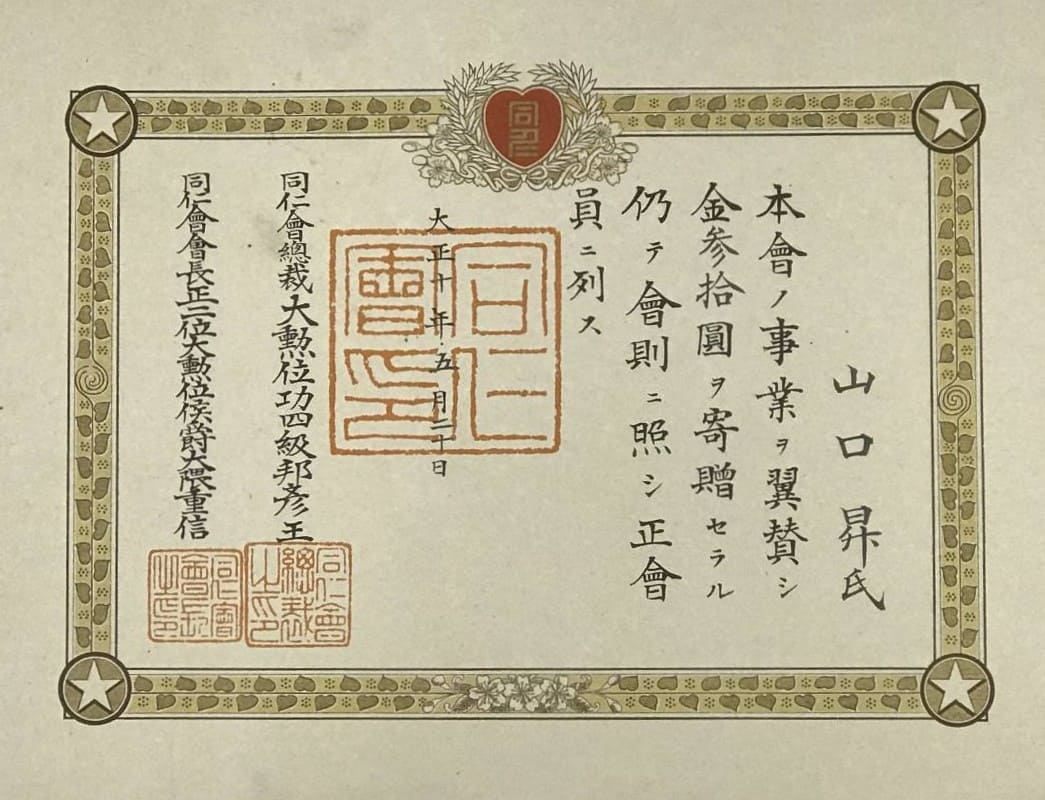 同仁
山口昇氏
本會ノ事業ヲ翼賛シ
金參拾圓ヲ寄贈セラル
仍テ會則ニ照シ正會
員ニ列ス
大正十年五月二十日
同仁會印
同仁會總裁大勲位功四級邦彦王
同仁會總裁之印
同仁會會長正二位大勲位侯爵大隈重信
同仁會會長之印